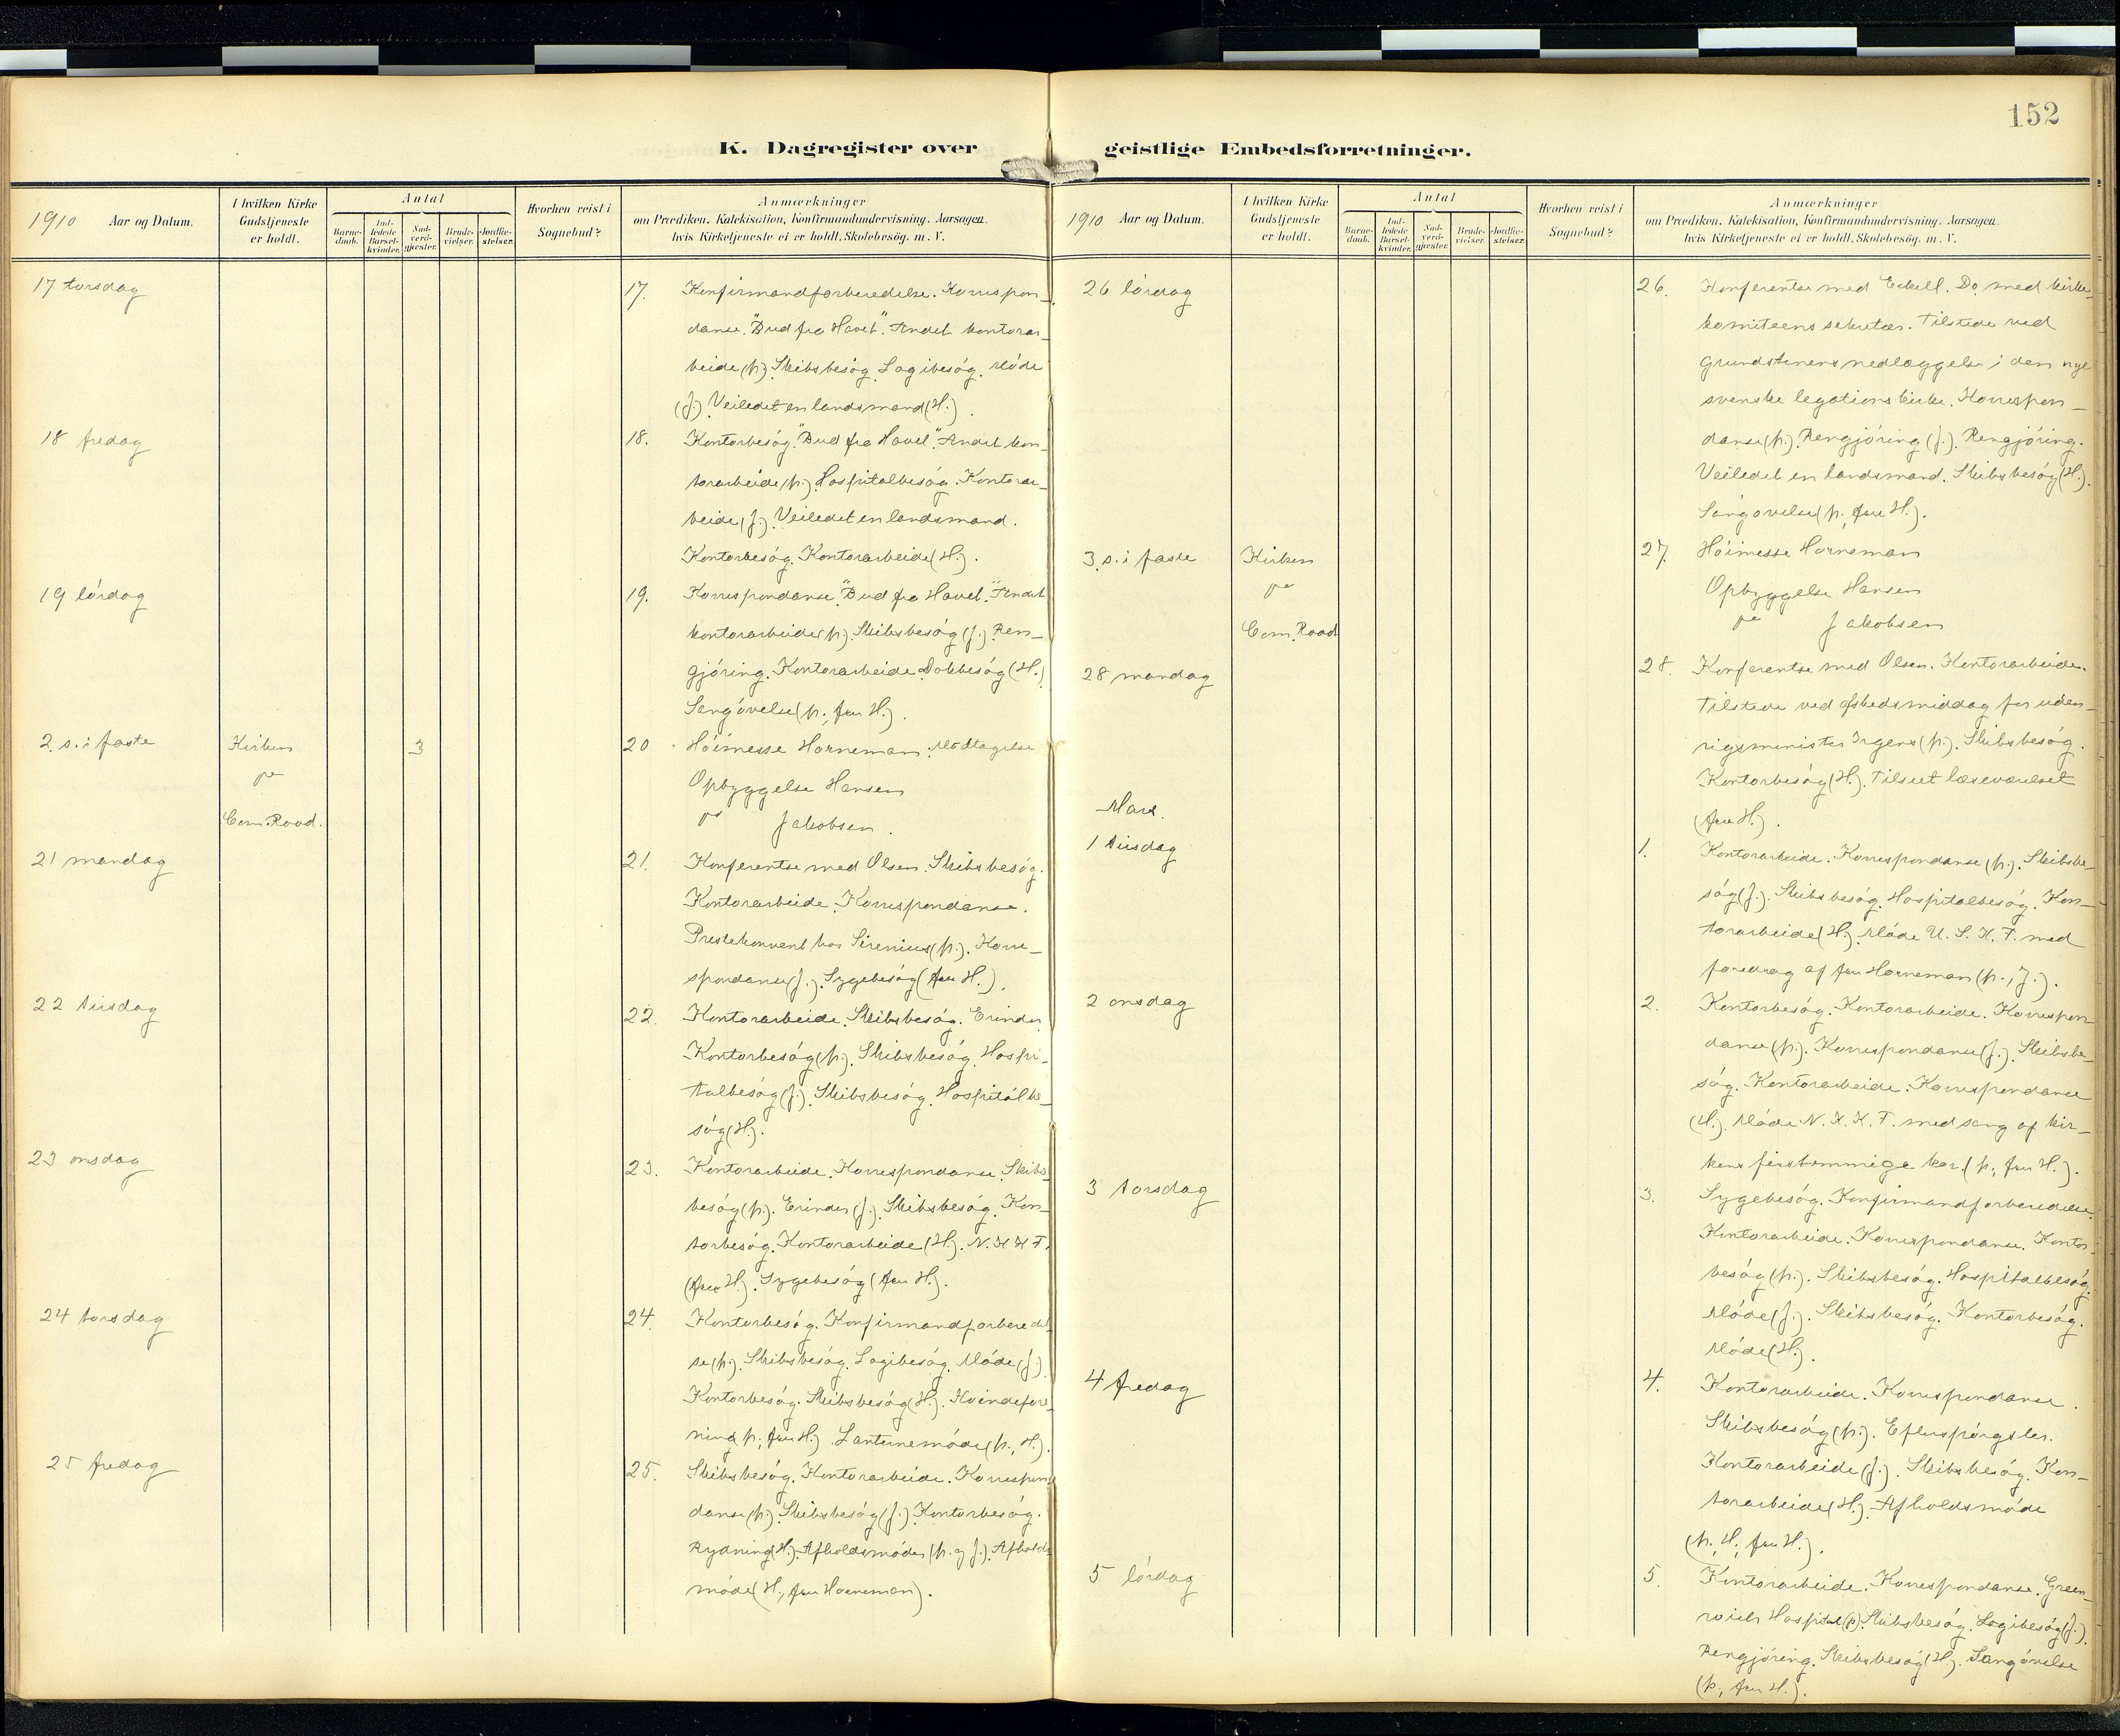 152
K. Dagregister over geistlige Embedsforretninger.
1910 Aar og Datum.
I hvilken Kirke Gudstjeneste er holdt.
Antal
Barne-daab.
Ind-ledede Barsel-kvinder.
Nad-verd-gjæster.
Brude-vielser.
Jordfæ-stelser.
Hvorhen reist i Sognebud?
Anmærkninger
om Prædiken, Katekisation, Konfirmandundervisning. Aarsagen,
hvis Kirketjeneste ei er holdt, Skolebesög. m. V.
17 torsdag
17. Konfirmandforberedelse. Korrespon-
danse. "Bud fra Havet". Andet kontorar-
beide (p.). Skibsbesøg. Logibesøg. Møde
(J.). Veiledet en landsmand (H.).
18 fredag
18. Kontorbesøg. "Bud fra Havet". Andet kon-
torarbeide (p.). Hospitalbesøg. Kontorar-
beide (J.). Veiledet en landsmand.
Kontorbesøg. Kontorarbeide (H.).
19 lørdag
19. Korrespondanse. "Bud fra Havet". Andet
kontorarbeide (p.). Skibsbesøg (J.). Ren-
gjøring. Kontorarbeide. Dokbesøg (H.).
Sangøvelse (p., fru H.).
2. s. i faste Kirken 3
20. Høimesse Horneman. Modtagelse
Opbyggelse Hansen
Com. Road. Jakobsen.
21 mandag
21. Konferentse med Olsen. Skibsbesøg.
Kontorarbeide. Korrespondanse.
Prestekonvent hos Sirenius (p.). Korre-
spondanse (J.). Sygebesøg (fru H.).
22 tirsdag
22. Kontorarbeide. Skibsbesøg. Erinder.
Kontorbesøg (p.). Skibsbesøg. Hospi-
talbesøg (J.). Skibsbesøg. Hospitalbe-
søg (H.).
23 onsdag
23. Kontorarbeide. Korrespondanse. Skibs-
besøg (p.). Erinder (J.). Skibsbesøg. Kon-
torbesøg. Kontorarbeide (H.). N. K. K. F.
(fru H.). Sygebesøg (fru H.).
24 torsdag
24. Kontorbesøg. Konfirmandforberedel-
se (p.). Skibsbesøg. Logibesøg. Møde (J.).
Kontorbesøg. Skibsbesøg (H.). Kvindefore-
ning (p., fru H.). Lanternemøde (p., H.).
25 fredag
25. Skibsbesøg. Kontorarbeide. Korrespon-
danse (p.). Skibsbesøg (J.). Kontorbesøg.
Rydning (H.). Afholdsmøde (p. og J.). Afholds-
møde (H., fru Horneman).
1910 Aar og Datum.
I hvilken Kirke Gudstjeneste er holdt.
Antal
Barne-daab.
Ind-ledede Barsel-kvinder.
Nad-verd-gjæster.
Brude-vielser.
Jordfæ-stelser.
Hvorhen reist i Sognebud?
Anmærkninger
om Prædiken, Katekisation, Konfirmandundervisning. Aarsagen,
hvis Kirketjeneste ei er holdt, Skolebesög. m. V.
26 lørdag
26. Konferentse med Eckell. Do med kirke-
komiteens sekretær. Tilstede ved
grundstenens nedlæggelse i den nye
svenske legationskirke. Korrespon-
danse (p.). Rengjøring (J.). Rengjøring.
Veiledet en landsmand. Skibsbesøg (H.).
Sangøvelse (p., fru H.).
3. s. i faste Kirken
27. Høimesse Horneman
Opbyggelse Hansen
Com. Road Jakobsen
28 mandag
28. Konferentse med Olsen. Kontorarbeide.
Tilstede ved afskedsmiddag for uden-
rigsminister Irgens (p.). Skibsbesøg.
Kontorbesøg (H.). Tilseet læseværelset
(fru H.).
Mars.
1 tirsdag
1. Kontorarbeide. Korrespondanse (p.). Skibsbe-
søg (J.). Skibsbesøg. Hospitalbesøg. Kon-
torarbeide (H.). Møde U. S. K. F. med
foredrag af fru Horneman (p., J.).
2 onsdag
2. Kontorbesøg. Kontorarbeide. Korrespon-
danse (p.). Korrespondanse (J.). Skibsbe-
søg. Kontorarbeide. Korrespondanse
(H.). Møde N. K. K. F. med sang af kir-
kens firstemmige kor. (p., fru H.).
3 torsdag
3. Sygebesøg. Konfirmandforberedelse.
Kontorarbeide. Korrespondanse. Kontor-
besøg (p.). Skibsbesøg. Hospitalbesøg.
Møde (J.). Skibsbesøg. Kontorbesøg.
Møde (H.).
4 fredag
4. Kontorarbeide. Korrespondanse.
Skibsbesøg (p.). Efterspørgsler.
Kontorarbeide (J.). Skibsbesøg. Kon-
torarbeide (H.). Afholdsmøde
(p., H., fru H.).
5 lørdag
5. Kontorarbeide. Korrespondanse. Green-
wich Hospital (p.). Skibsbesøg. Logibesøg (J.).
Rengjøring. Skibsbesøg (H.). Sangøvelse
(p., fru H.).